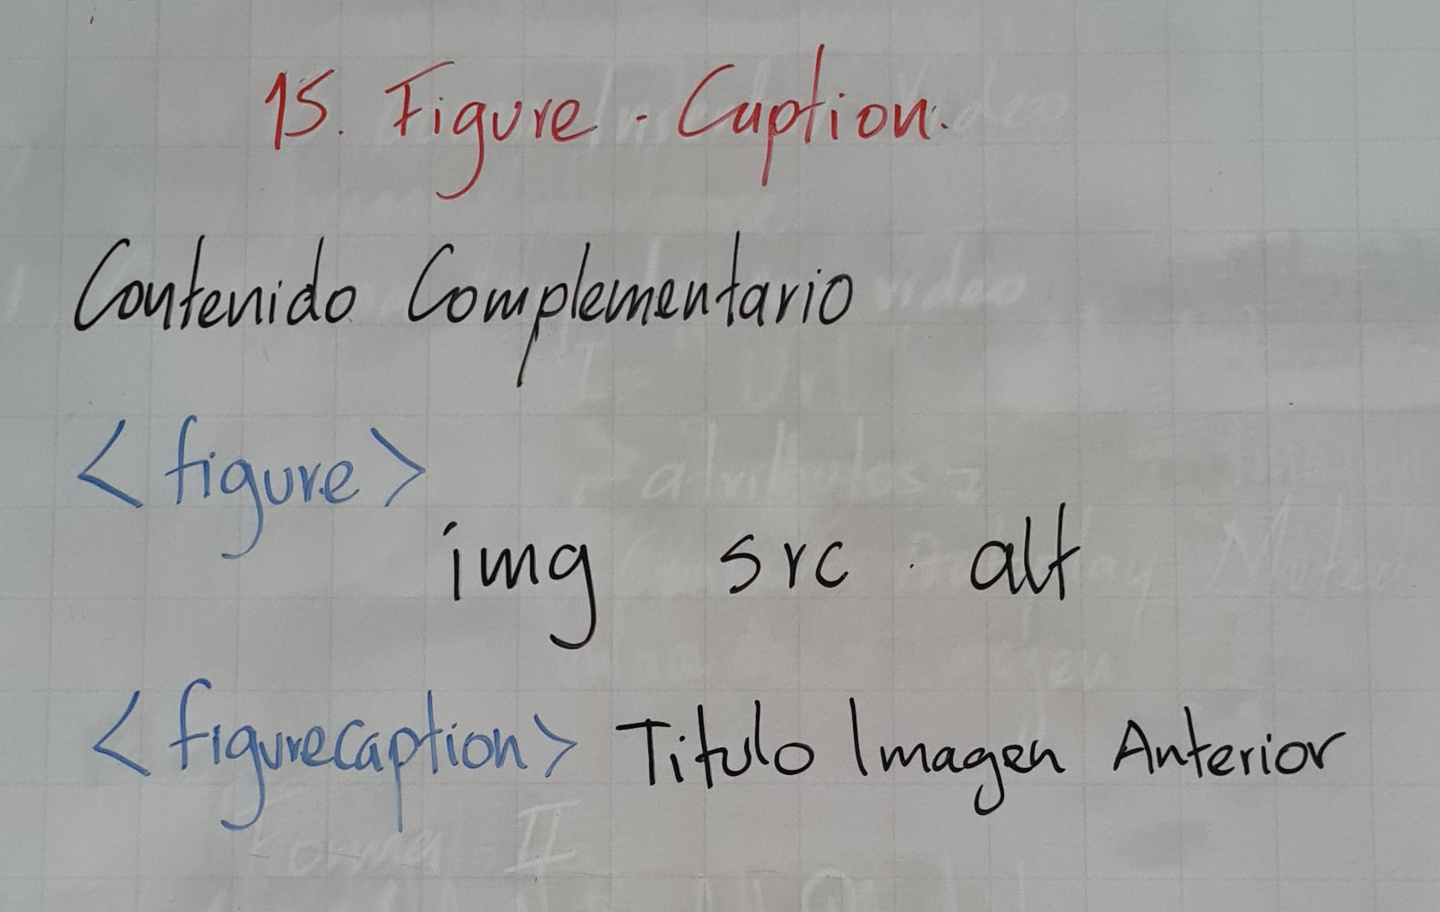 15. Figure - Caption.
Contenido Complementario
<figure>
img src alt
<figurecaption> Titulo Imagen Anterior